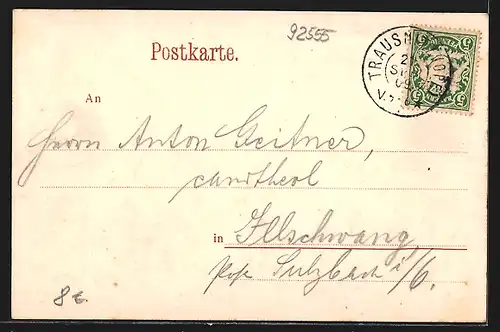 92555
Postkarte.
TRAUSN
An
Herrn Anton Geitner,
cand theol
in Illschwang,
Post Sulzbach i/O.
8 €